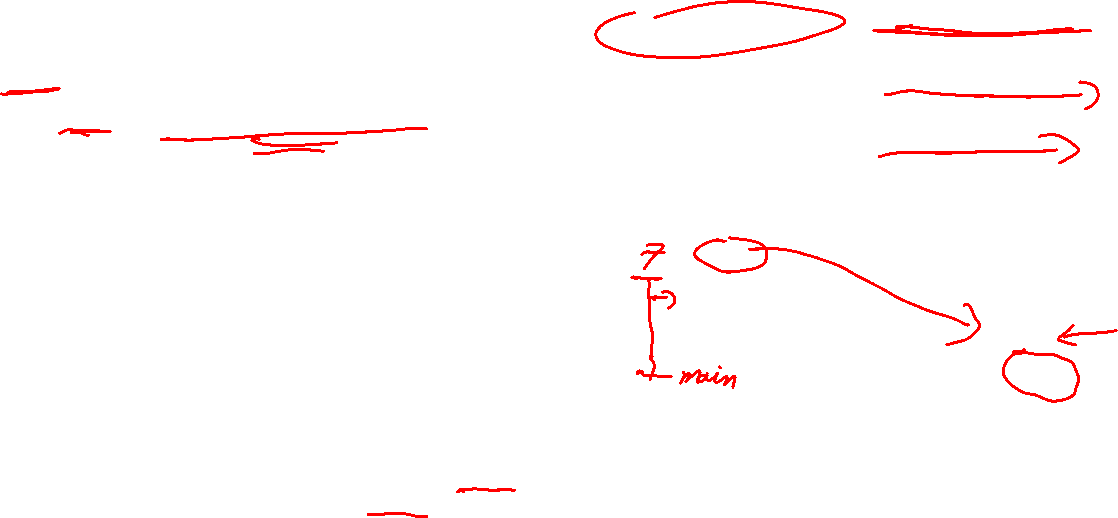 7
main